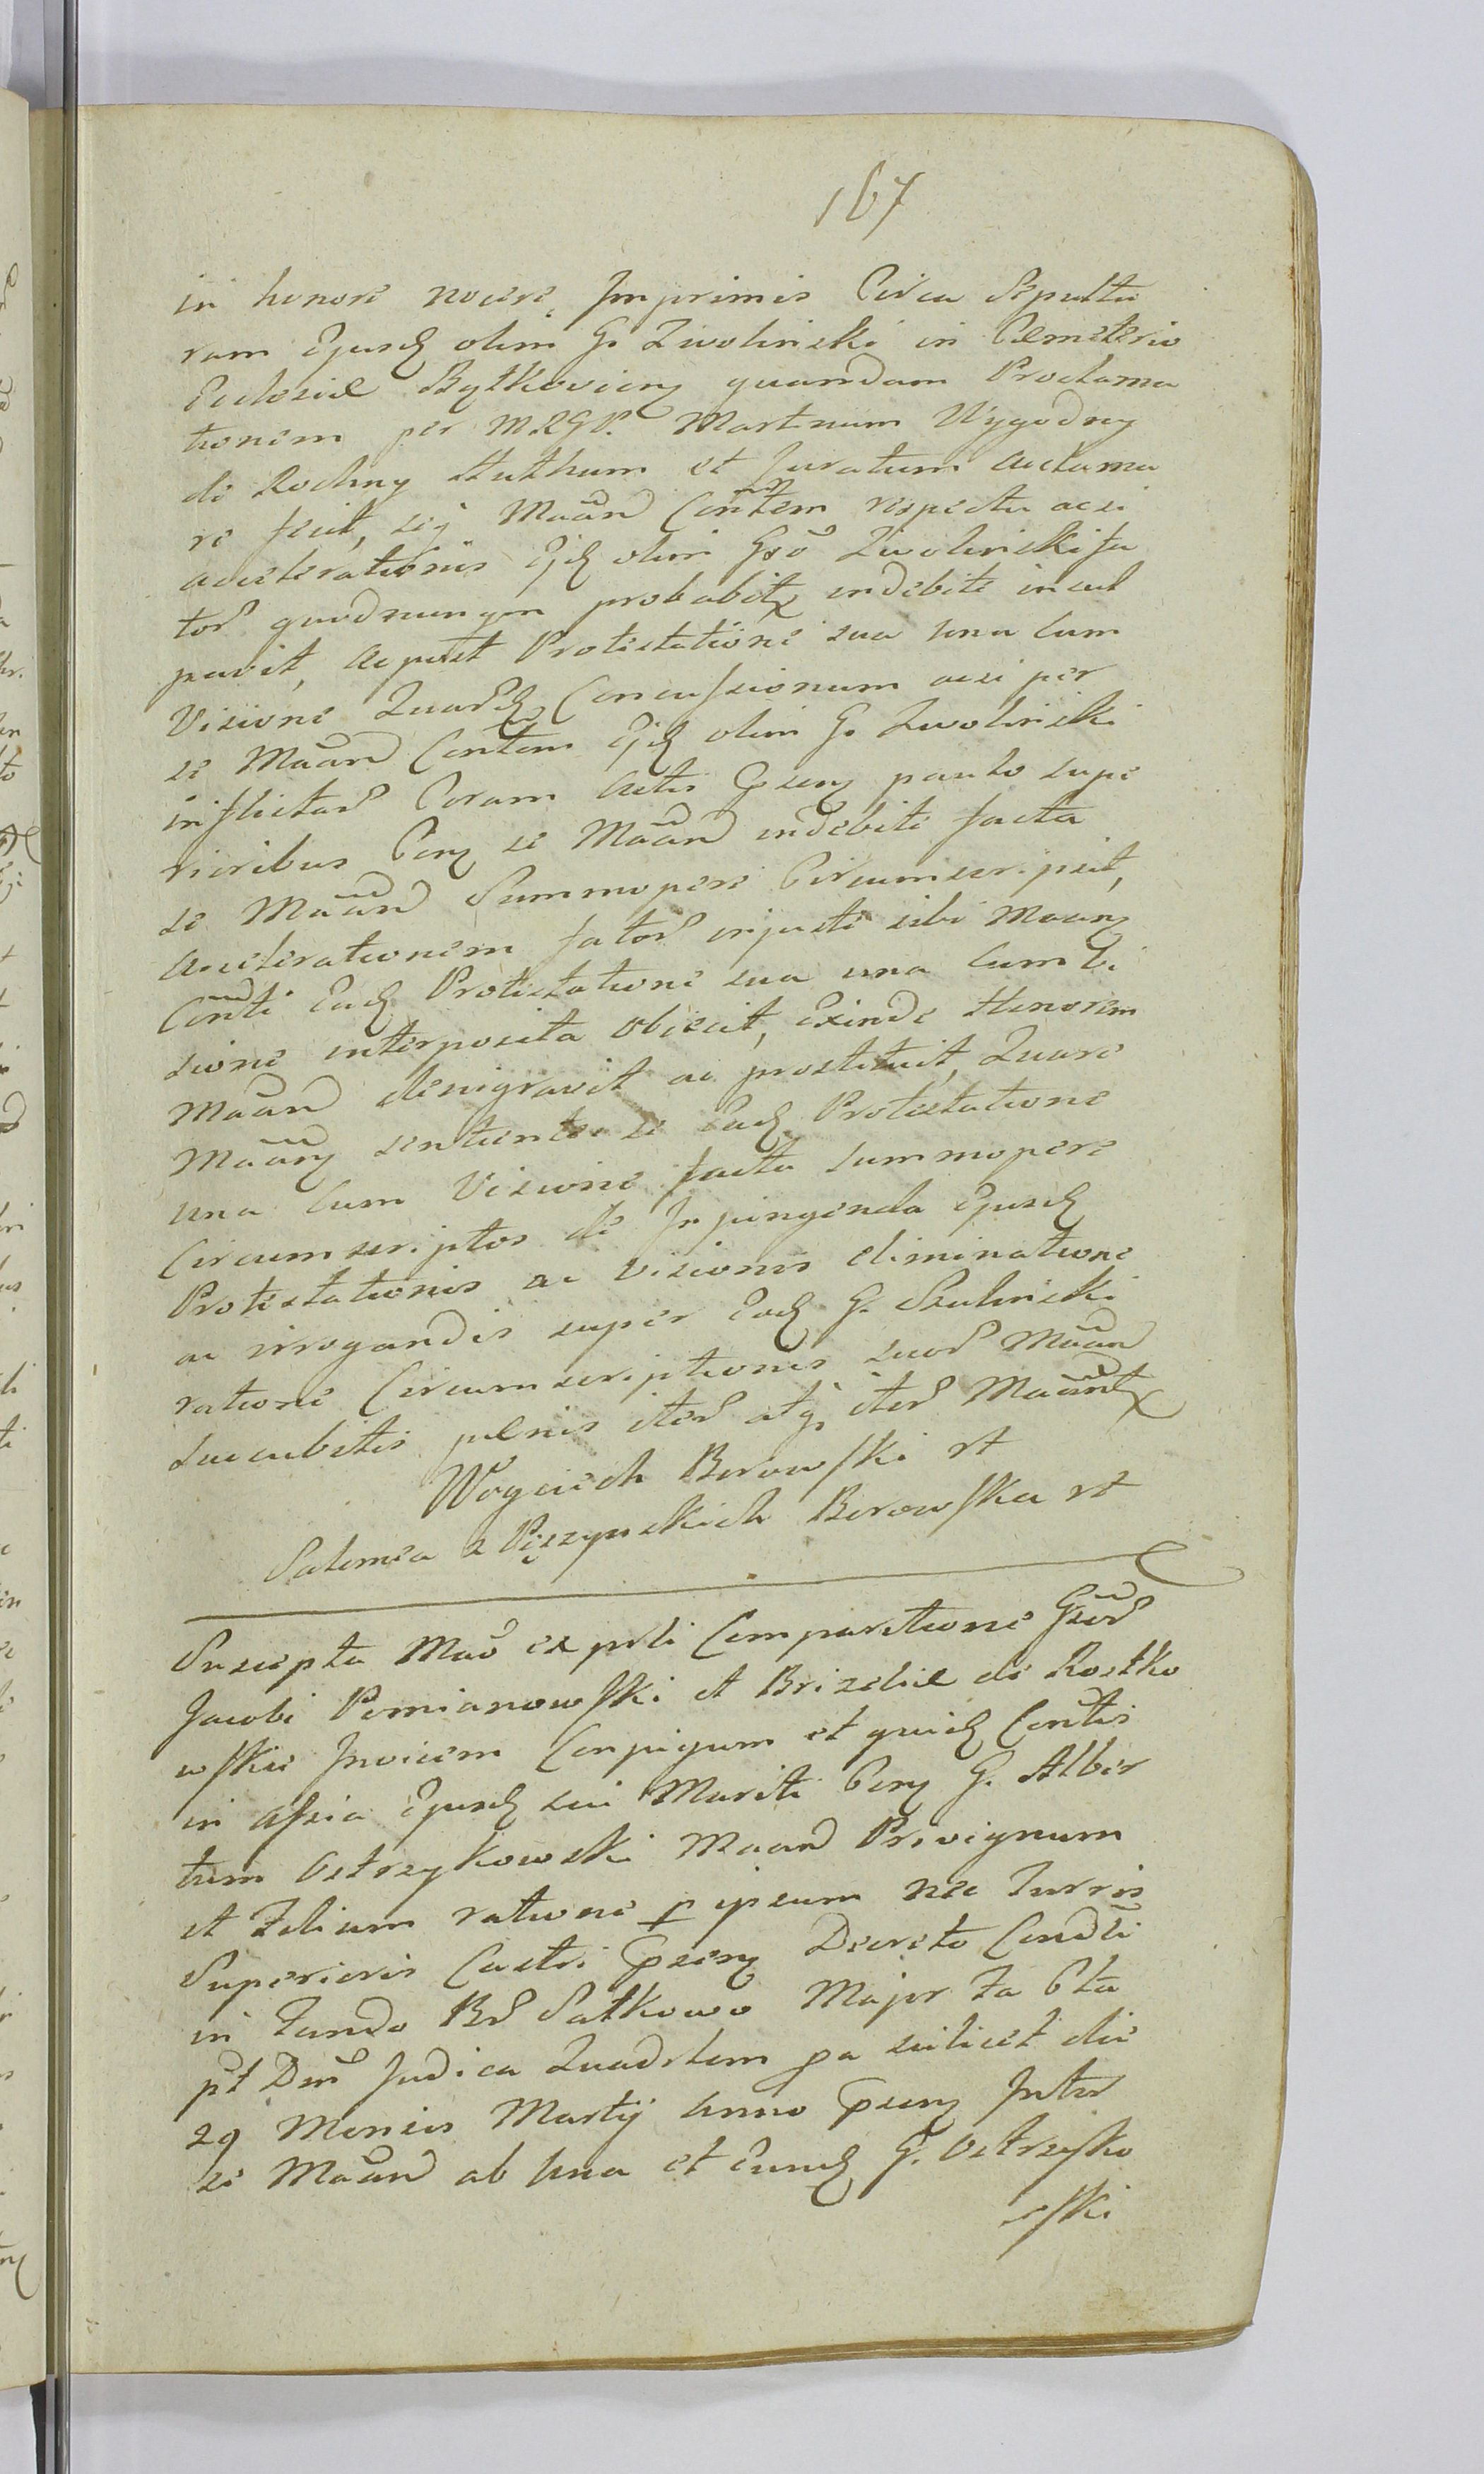 167
in honore nocere, Imprimis Circa Sepultu
ram Ejusd olim G. Zwolinski in Cemeterio
Eclesiæ Bytkoviens quandam Proclama
tionem per MRGP. Martinum Wygodny
de Rochny et Juratum aclama
re fecit, seq Maan Contem respectu acsi
accelerationis Ejd olim Gso Zwolinski fa
tor quodnunqm probabitr indebite incul
pavit, ac post Protestatione sua una cum
Visione Concussionum acsi per
se Maan Contem Ejd olim G. Zwolinski
inflictar Coram Actis psens paulo supe
rioribus Cons se Maan indebite facta
se Maan Summopere Circumscripsit,
accelerationem fator injuste sibi Maan
Conti Ead Protestatione sua una cum Vi
sione interposita obiecit, Exinde Honorem
Maan denigravit ac prostituit, Quare
Maan sentientes se Ead Protestatione
una cum Visione facta summopere
Circumscriptos de Injungenda Ejusd
Protestationis ac visionis eliminatione
ac irrogandis super Eod G. Szulinski
ratione Circumscriptionis suor Maan
Succubitis pænis iter atq iter Maantr
Woyciech Borowski rt
Salomea z Pięszyńskich Borowska rt
Suscepta Mao ex psli Comparitione Gsor
Jacobi Pomianowski et Brizeliæ de Rostko
wskie Invicem Conjugum et quid Contis
in assia Ejusd sui Mariti Cons G. Alber
tum Ostrzykowski Maan Privignum
et Filium ratione p ipsum nec Turris
Superioris Castri psens Decreto Condti
in Fundo Br Satkowo Major Fa 6ta
pt Dm Judica Quadrlem pa scilicet die
29 Mensis Martij Anno psens Inter
se Maan ab una et Eund G. Ostrzyko
wski